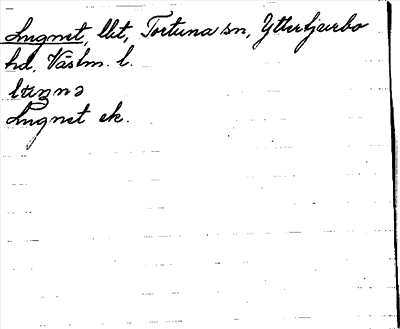 Lugnet, lht, Tortuna sn, Yttertjurbo
hd, Västm. l.
Lugnet ek.